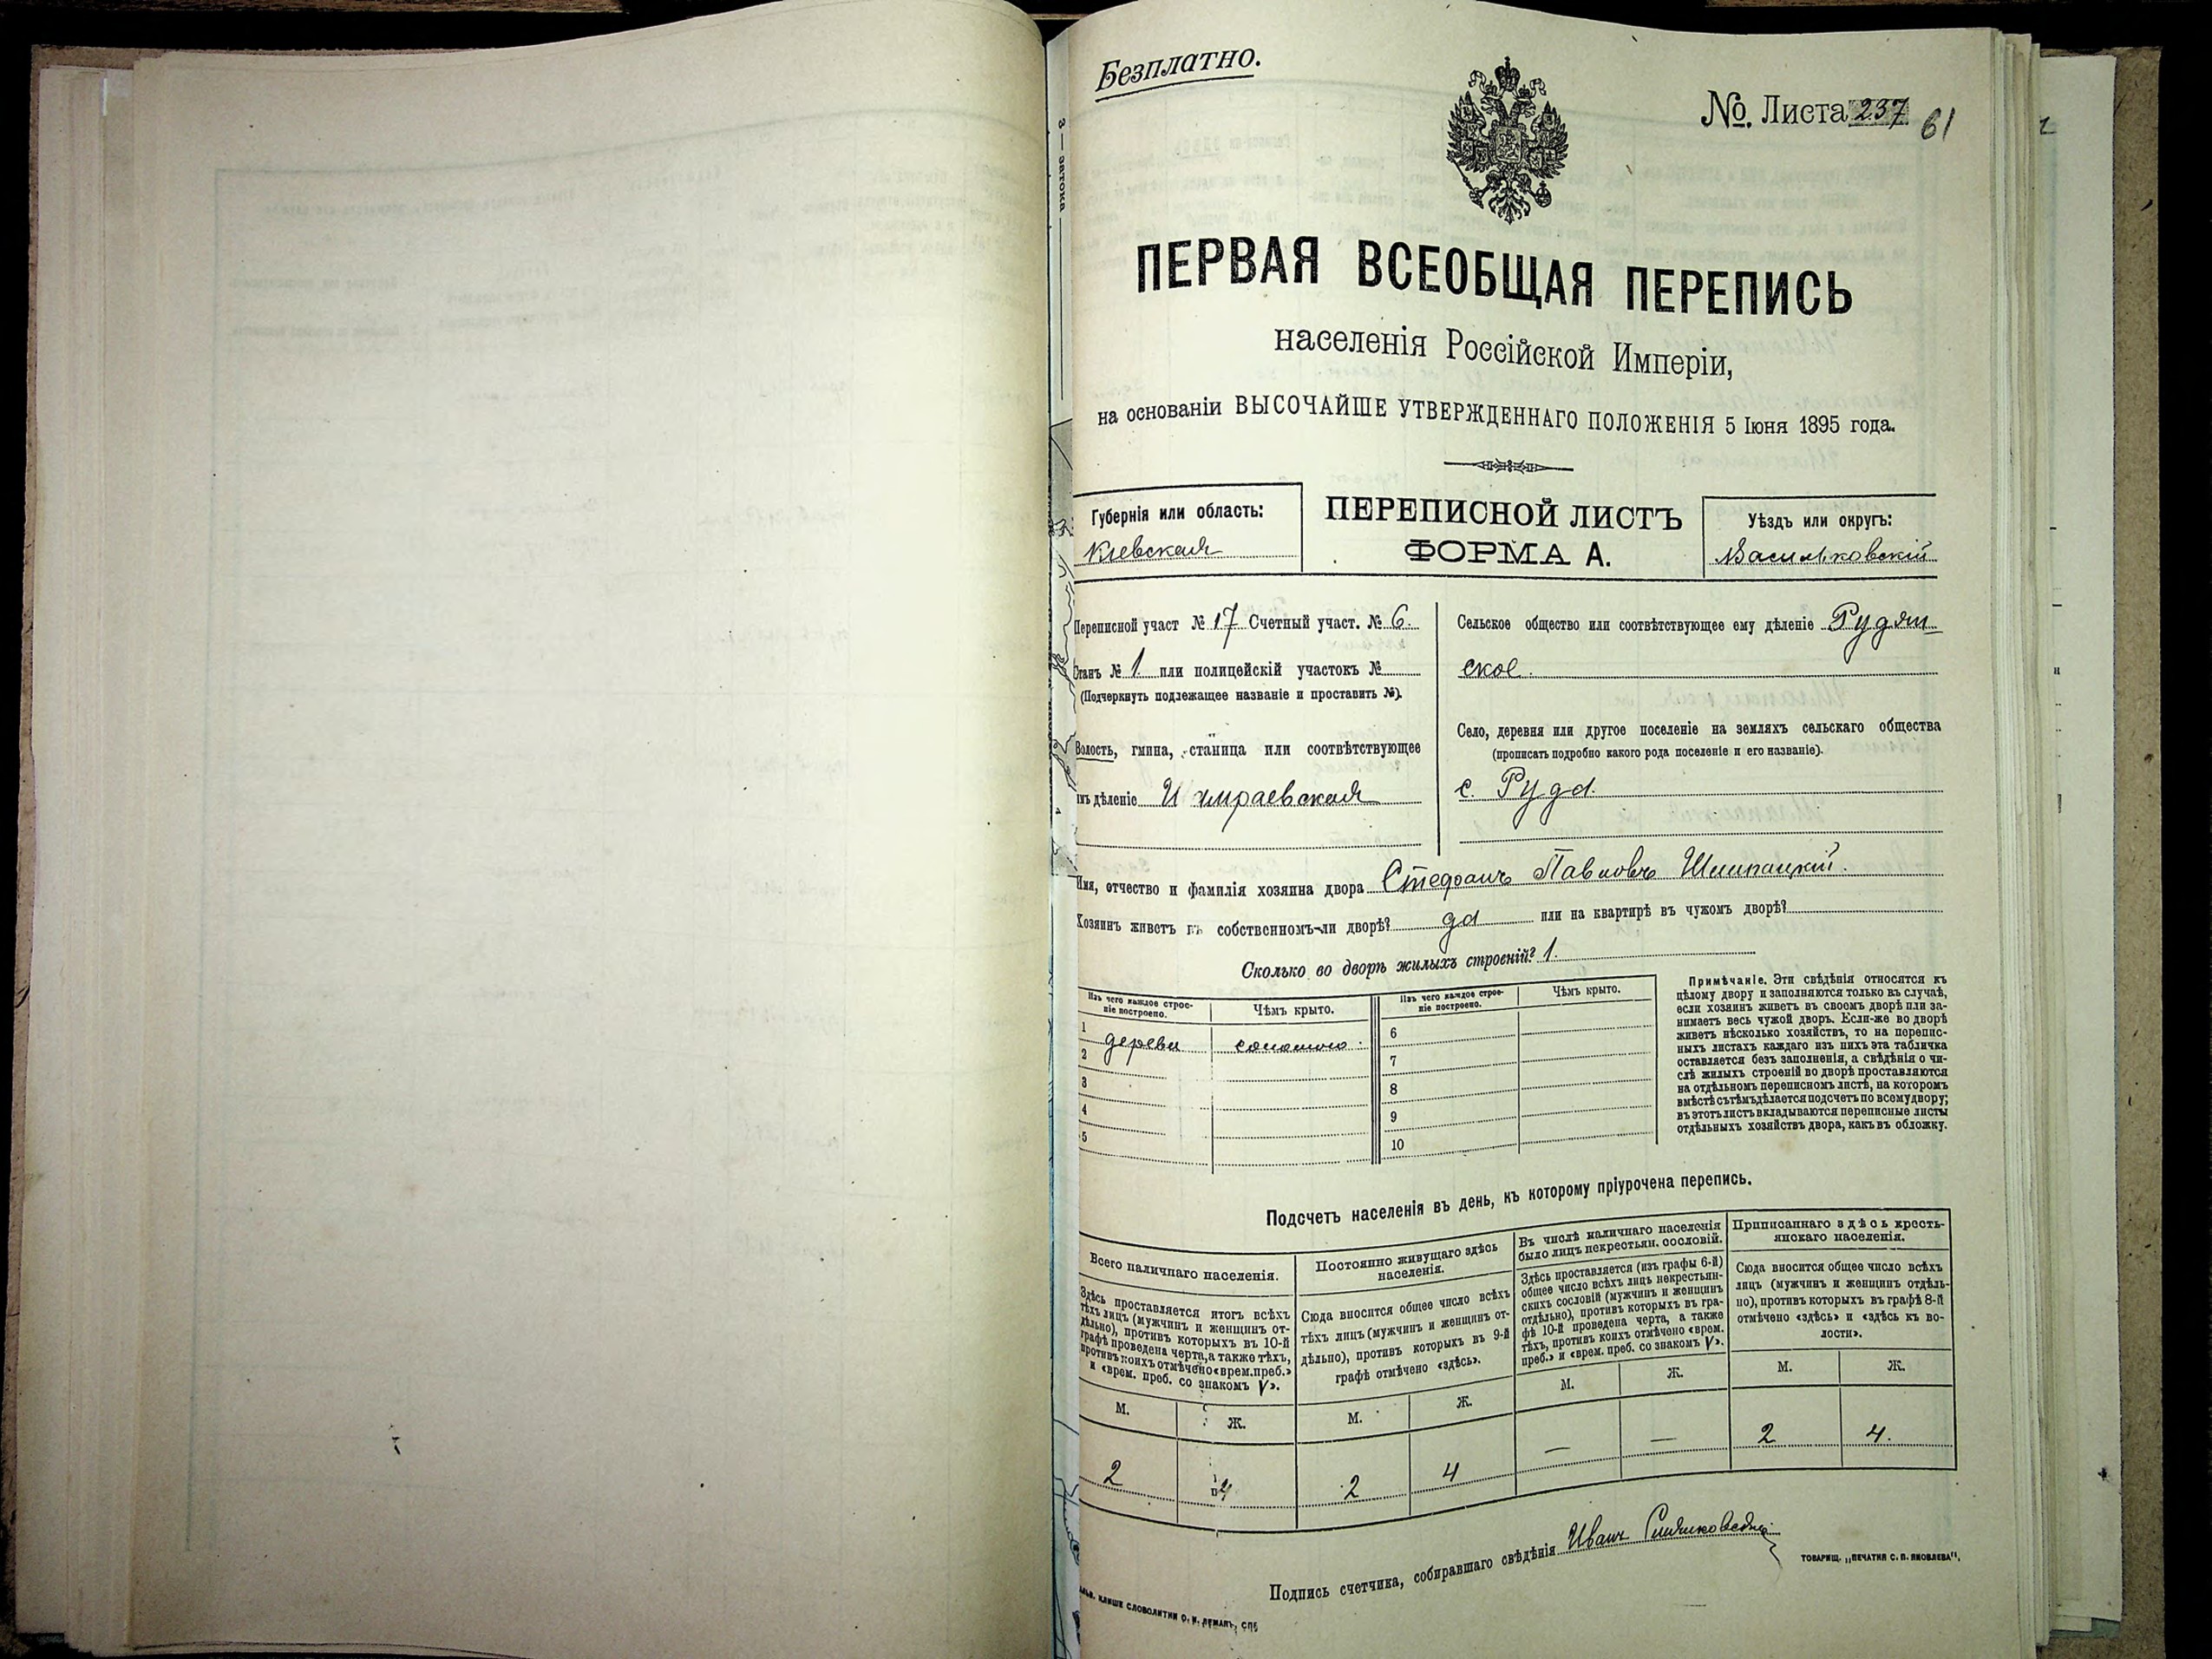 Безплатно.
No. Листа 237 61
ПЕРВАЯ ВСЕОБЩАЯ ПЕРЕПИСЬ
населенія Россійской Имперіи,
на основаніи ВЫСОЧАЙШЕ УТВЕРЖДЕННАГО ПОЛОЖЕНІЯ 5 Іюня 1895 года.
Губернія или область:
Кіевская
ПЕРЕПИСНОЙ ЛИСТЪ
ФОРМА А.
Уѣздъ или округъ:
Васильковскій
Переписной участ № 17 Счетный участ. № 6.
Станъ № 1 или полицейскій участокъ №
(Подчеркнуть подлежащее названіе и проставить №).
Волость, гмина, станица или соотвѣтствующее
имъ дѣленіе
Сельское общество или соотвѣтствующее ему дѣленіе Рудян
ское.
Село, деревня или другое поселеніе на земляхъ сельскаго общества
(прописать подробно какого рода поселеніе и его названіе).
с. Руда.
Имя, отчество и фамилія хозяина двора Стефанъ Павловъ Шпипацкій.
Хозяинъ живетъ въ собственномъ-ли дворѣ? да или на квартирѣ въ чужомъ дворѣ?
Сколько во дворѣ жилыхъ строеній? 1.
Изъ чего каждое строе-
ніе построено.
Чѣмъ крыто.
1 дерева соломою.
2
3
4
5
Изъ чего каждое строе-
ніе построено.
Чѣмъ крыто.
6
7
8
9
10
Примѣчаніе. Эти свѣдѣнія относятся къ
цѣлому двору и заполняются только въ случаѣ,
если хозяинъ живетъ въ своемъ дворѣ или за-
нимаетъ весь чужой дворъ. Если-же во дворѣ
живетъ нѣсколько хозяйствъ, то на перепис-
ныхъ листахъ каждаго изъ нихъ эта табличка
оставляется безъ заполненія, а свѣдѣнія о чи-
слѣ жилыхъ строеній во дворѣ проставляются
на отдѣльномъ переписномъ листѣ, на которомъ
вмѣстѣ съ тѣмъ дѣлается подсчетъ по всему двору;
въ этотъ листъ вкладываются переписные листы
отдѣльныхъ хозяйствъ двора, какъ въ обложку.
Подсчетъ населенія въ день, къ которому пріурочена перепись.
Всего наличнаго населенія.
Здѣсь проставляется итогъ всѣхъ
тѣхъ лицъ (мужчинъ и женщинъ от-
дѣльно), противъ которыхъ въ 10-й
графѣ проведена черта, а также тѣхъ,
противъ коихъ отмѣчено «врем. преб.»
и «врем. преб. со знакомъ V».
М. Ж.
2 4
Постоянно живущаго здѣсь
населенія.
Сюда вносится общее число всѣхъ
тѣхъ лицъ (мужчинъ и женщинъ от-
дѣльно), противъ которыхъ въ 9-й
графѣ отмѣчено «здѣсь».
М. Ж.
2 4
Въ числѣ наличнаго населенія
было лицъ некрестьян. сословій.
Здѣсь проставляется (изъ графы 6-й)
общее число всѣхъ лицъ некрестьян-
скихъ сословій (мужчинъ и женщинъ
отдѣльно), противъ которыхъ въ гра-
фѣ 10-й проведена черта, а также
тѣхъ, противъ коихъ отмѣчено «врем.
преб.» и «врем. преб. со знакомъ V».
М. Ж.
— —
Приписаннаго здѣсь кресть-
янскаго населенія.
Сюда вносится общее число всѣхъ
лицъ (мужчинъ и женщинъ отдѣль-
но), противъ которыхъ въ графѣ 8-й
отмѣчено «здѣсь» и «здѣсь къ во-
лости».
М. Ж.
2 4.
Подпись счетчика, собиравшаго свѣдѣнія Иванъ
ТОВАРИЩ. „ПЕЧАТНЯ С. П. ЯКОВЛЕВА“.
КЛИШЕ СЛОВОЛИТНИ О. И. ЛЕМАНЪ, СПБ